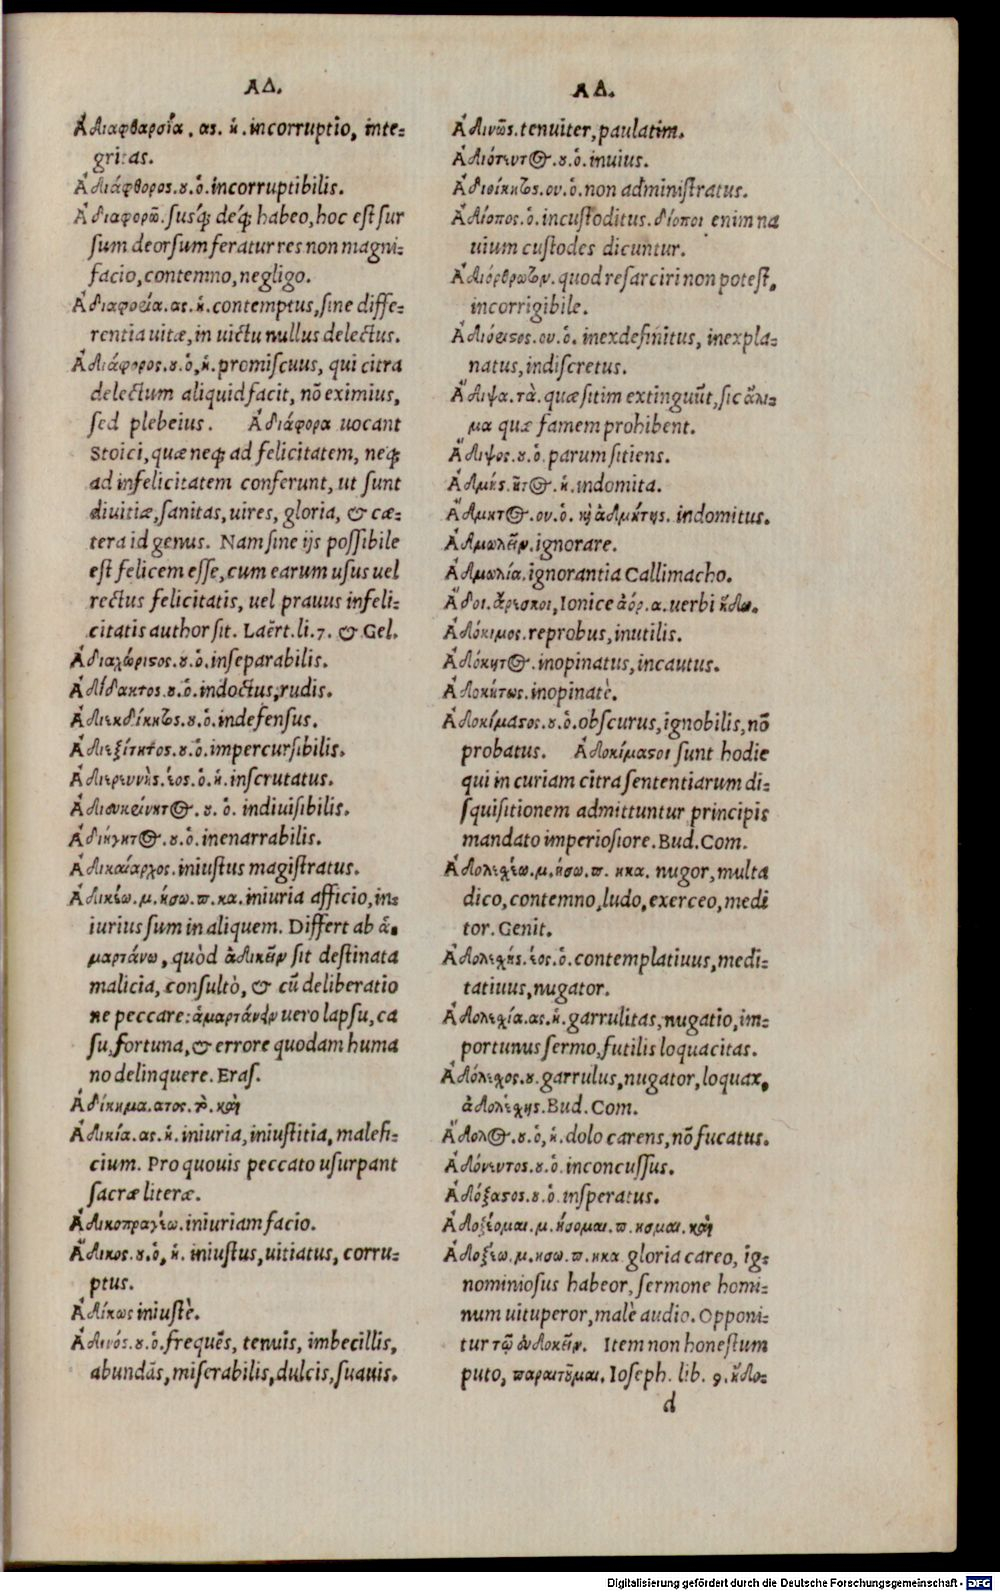 ΑΔ.
Ἀδιαφθαρσία. ας. ἡ. incorruptio, inte-
gritas.
Ἀδιάφθορος.ȣ.ὁ.incorruptibilis.
Ἀδιαφορῶ.susq́; deq́; habeo, hoc est sur
sum deorsum feratur res non magni-
facio, contemno, negligo.
Ἀδιαφορία.ας.ἡ.contemptus, sine diffe-
rentia uitæ, in uictu nullus delectus.
Ἀδιάφορος.ȣ.ὁ,ἡ.promiscuus, qui citra
delectum aliquid facit, nõ eximius,
sed plebeius. Ἀδιάφορα uocant
Stoici, quæ neq; ad felicitatem, neq;
ad infelicitatem conferunt, ut sunt
diuitiæ, sanitas, uires, gloria, & cæ-
tera id genus. Nam sine ijs possibile
est felicem esse, cum earum usus uel
rectus felicitatis, uel prauus infeli-
citatis author sit. Laërt. li. 7. & Gel.
Ἀδιαχώριστος.ȣ.ὁ.inseparabilis.
Ἀδίδακτος.ȣ.ὁ.indoctus, rudis.
Ἀδιεκδίκητος.ȣ.ὁ.indefensus.
Ἀδιεξίτητος.ȣ.ὁ.impercursibilis.
Ἀδιερευνὴς.έος.ὁ.ἡ.inscrutatus.
Ἀδιευκρίνητος. ȣ. ὁ. indiuisibilis.
Ἀδιήγητος.ȣ.ὁ.inenarrabilis.
Ἀδικαίαρχος. iniustus magistratus.
Ἀδικέω.μ.ήσω.π.κα.iniuria afficio, in-
iurius sum in aliquem. Differt ab ἁ-
μαρτάνω, quòd ἀδικεῖν sit destinata
malicia, consultò, & cũ deliberatio
ne peccare: ἁμαρτάνειν uero lapsu, ca
su, fortuna, & errore quodam huma
no delinquere. Eras.
Ἀδίκημα.ατος.τὸ. καὶ
Ἀδικία.ας.ἡ.iniuria, iniustitia, malefi-
cium. Pro quouis peccato usurpant
sacræ literæ.
Ἀδικοπραγέω.iniuriam facio.
Ἄδικος.ȣ.ὁ, ἡ. iniustus, uitiatus, corru-
ptus.
Ἀδίκως iniustè.
Ἀδινός.ȣ.ὁ.frequẽs, tenuis, imbecillis,
abundãs, miserabilis, dulcis, suauis.
ΑΔ.
Ἀδινῶς.tenuiter, paulatim.
Ἀδιόδευτος.ȣ.ὁ.inuius.
Ἀδιοίκητος.ου.ὁ.non administratus.
Ἀδίοπος.ὁ.incustoditus. δίοποι enim na
uium custodes dicuntur.
Ἀδιόρθρωτον.quod resarciri non potest,
incorrigibile.
Ἀδιόριστος.ου.ὁ. inexdefinitus, inexpla-
natus, indiscretus.
Ἄδιψα.τὰ.quæ sitim extinguũt, sic ἄλι-
μα quæ famem prohibent.
Ἄδιψος.ȣ.ὁ.parum sitiens.
Ἀδμής.ῆτος.ἡ.indomita.
Ἄδμητος.ου.ὁ. καὶ ἀδμήτης. indomitus.
Ἀδμωλεῖν.ignorare.
Ἀδμωλία.ignorantia Callimacho.
Ἄδοι.ἀρέσκοι, Ionice ἀόρ.α.uerbi ἥδω.
Ἀδόκιμος.reprobus, inutilis.
Ἀδόκητος.inopinatus, incautus.
Ἀδοκήτως.inopinatè.
Ἀδοκίμαστος.ȣ.ὁ.obscurus, ignobilis, nõ
probatus. Ἀδοκίμαστοι sunt hodie
qui in curiam citra sententiarum di-
squisitionem admittuntur principis
mandato imperiosiore. Bud. Com.
Ἀδολεχέω.μ.ήσω.π. ηκα. nugor, multa
dico, contemno, ludo, exerceo, medi
tor. Genit.
Ἀδολεχής.έος.ὁ.contemplatiuus, medi-
tatiuus, nugator.
Ἀδολεχία.ας.ἡ.garrulitas, nugatio, im-
portunus sermo, futilis loquacitas.
Ἀδόλεχος.ȣ.garrulus, nugator, loquax,
ἀδολέχης. Bud. Com.
Ἄδολος.ȣ.ὁ,ἡ.dolo carens, nõ fucatus.
Ἀδόνευτος.ȣ.ὁ.inconcussus.
Ἀδόξαστος.ȣ.ὁ.insperatus.
Ἀδοξέομαι.μ.ήσομαι.π.ησμαι. καὶ
Ἀδοξέω.μ.ησω.π.ηκα gloria careo, ig-
nominiosus habeor, sermone homi-
num uituperor, malè audio. Opponi-
tur τῷ εὐδοκεῖν. Item non honestum
puto, παραιτοῦμαι. Ioseph. lib. 9. ἠδο-
d
Digitalisierung gefördert durch die Deutsche Forschungsgemeinschaft - DFG